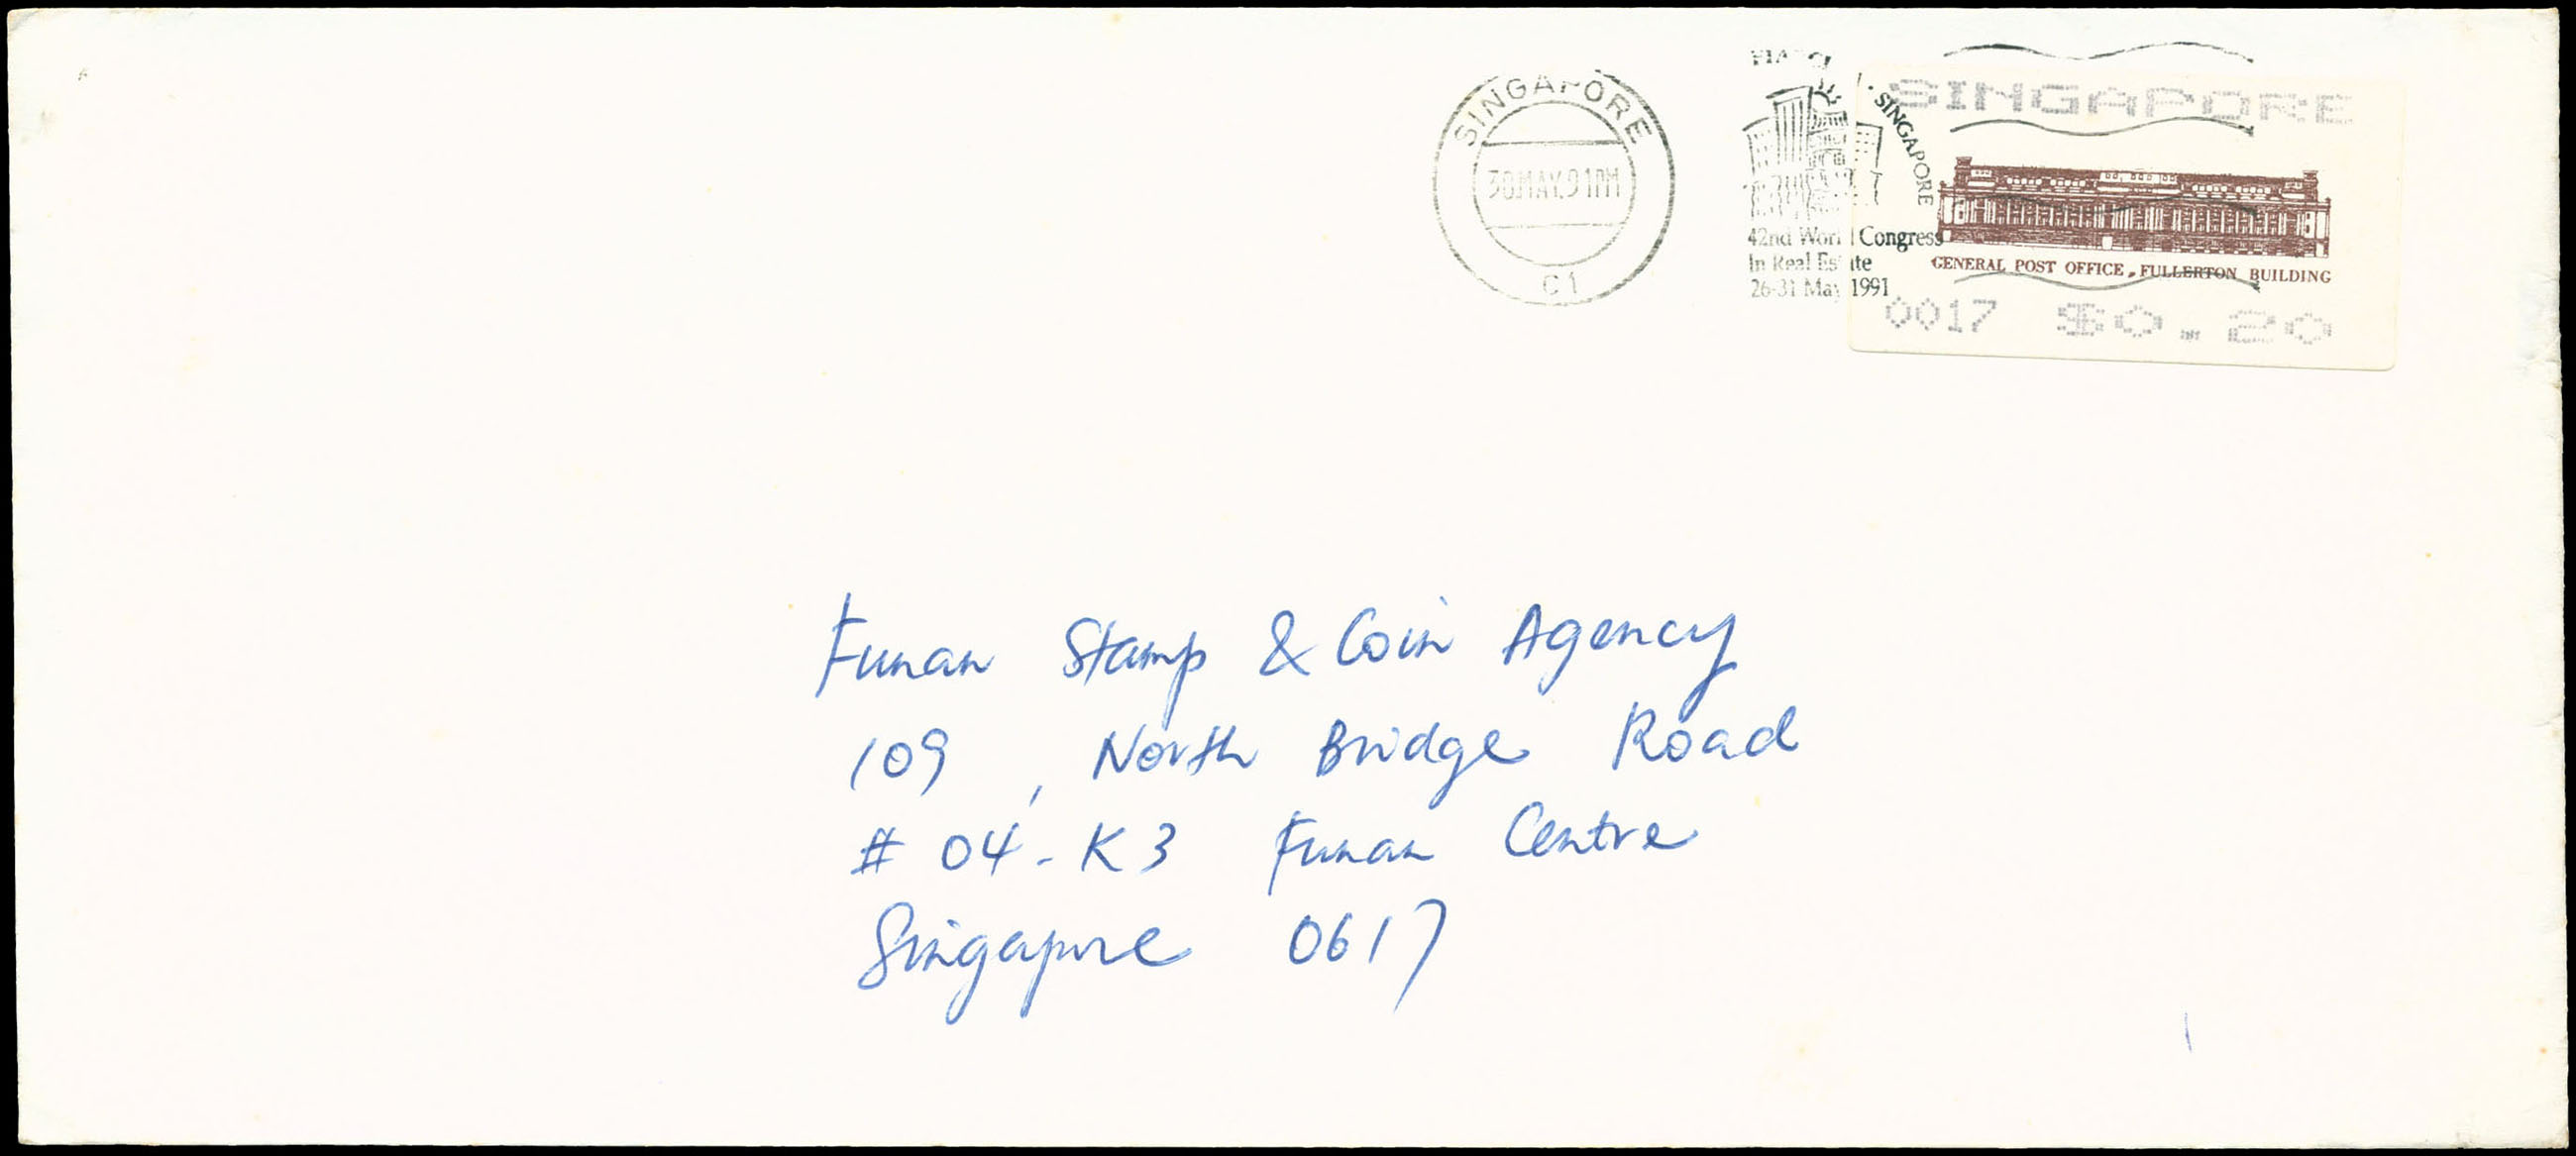 SINGAPORE
30.MAY.91PM
C1
SINGAPORE
42nd World Congress
In Real Estate
26-31 May 1991
SINGAPORE
GENERAL POST OFFICE, FULLERTON BUILDING
0017 $0.20
Funan Stamp & Coin Agency
109, North Bridge Road
# 04-K3 Funan Centre
Singapore 0617